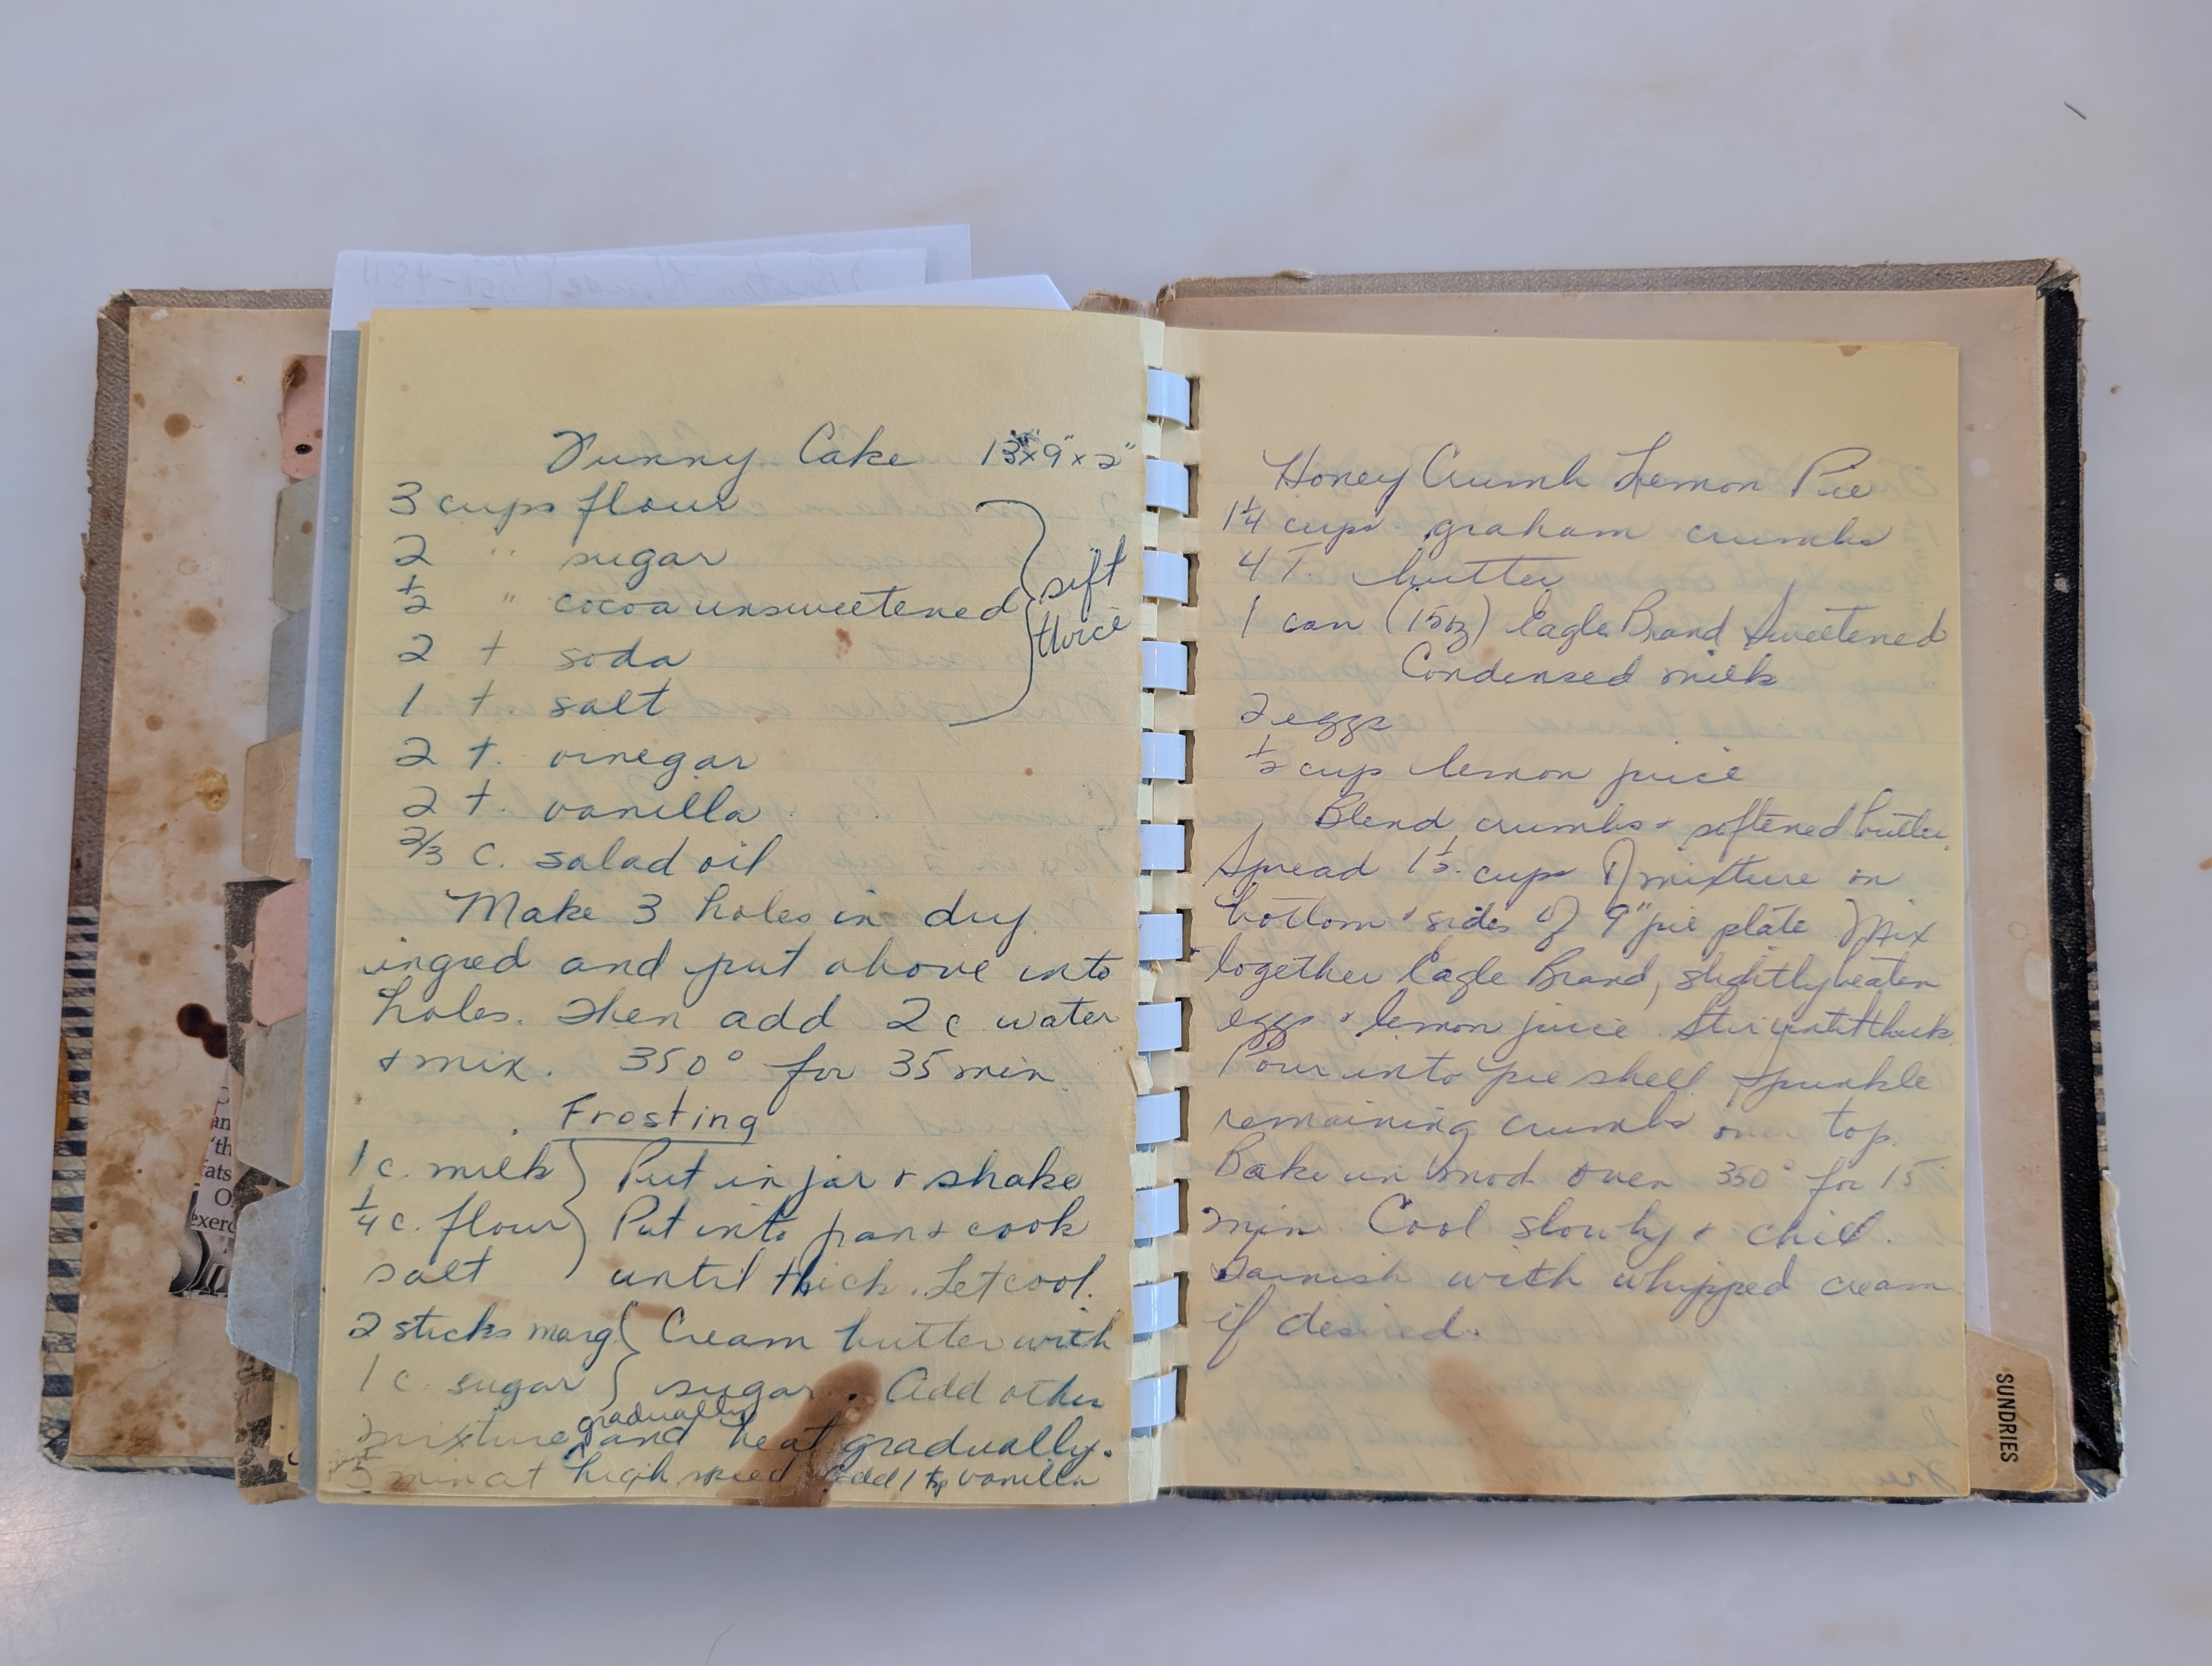 Funny Cake 13"x9"x2"
3 cups flour
2 " sugar
1/2 " cocoa unsweetened
2 t soda
1 t. salt
sift
twice
2 t. vinegar
2 t. vanilla
2/3 c. salad oil
Make 3 holes in dry
ingred and put above into
holes. Then add 2 c water
+ mix. 350° for 35 min.
Frosting
1 c. milk } Put in jar + shake
1/4 c. flour } Put into pan + cook
salt until thick. Let cool.
2 sticks marg. { Cream butter with
1 c. sugar } sugar. Add other
gradually
mixture and beat gradually.
5 min at high speed. Add 1 tsp vanilla
Honey Crumb Lemon Pie
1 1/4 cups graham crumbs
4 T. butter
1 can (15 oz) Eagle Brand Sweetened
Condensed milk
2 eggs
1/2 cup lemon juice
Blend crumbs + softened butter.
Spread 1 1/2 cups of mixture on
bottom + sides of 9" pie plate. Mix
together Eagle Brand, slightly beaten
eggs + lemon juice. Stir until thick.
Pour into pie shell. Sprinkle
remaining crumbs on top.
Bake in mod oven 350° for 15
min. Cool slowly + chill.
Garnish with whipped cream
if desired.
SUNDRIES